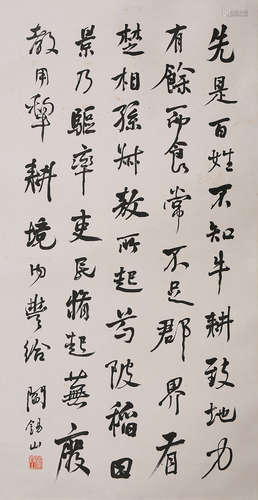 先是百姓不知牛耕致地力
有餘而食常不足郡界有
楚相孫叔敖所起芍陂稻田
景乃驅率吏民脩起蕪廢
教用犂耕境內豐給 閻錫山